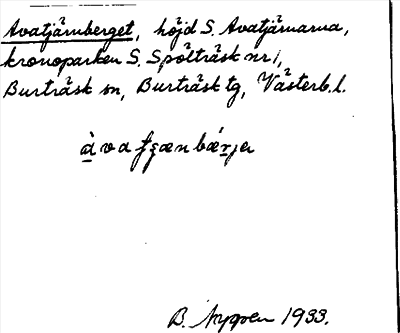 Avatjärnberget, höjd S. Avatjärnarna,
kronoparken S. Spölträsk nr 1,
Burträsk sn, Burträsk tg, Västerb. l.
B. Nygren 1933.